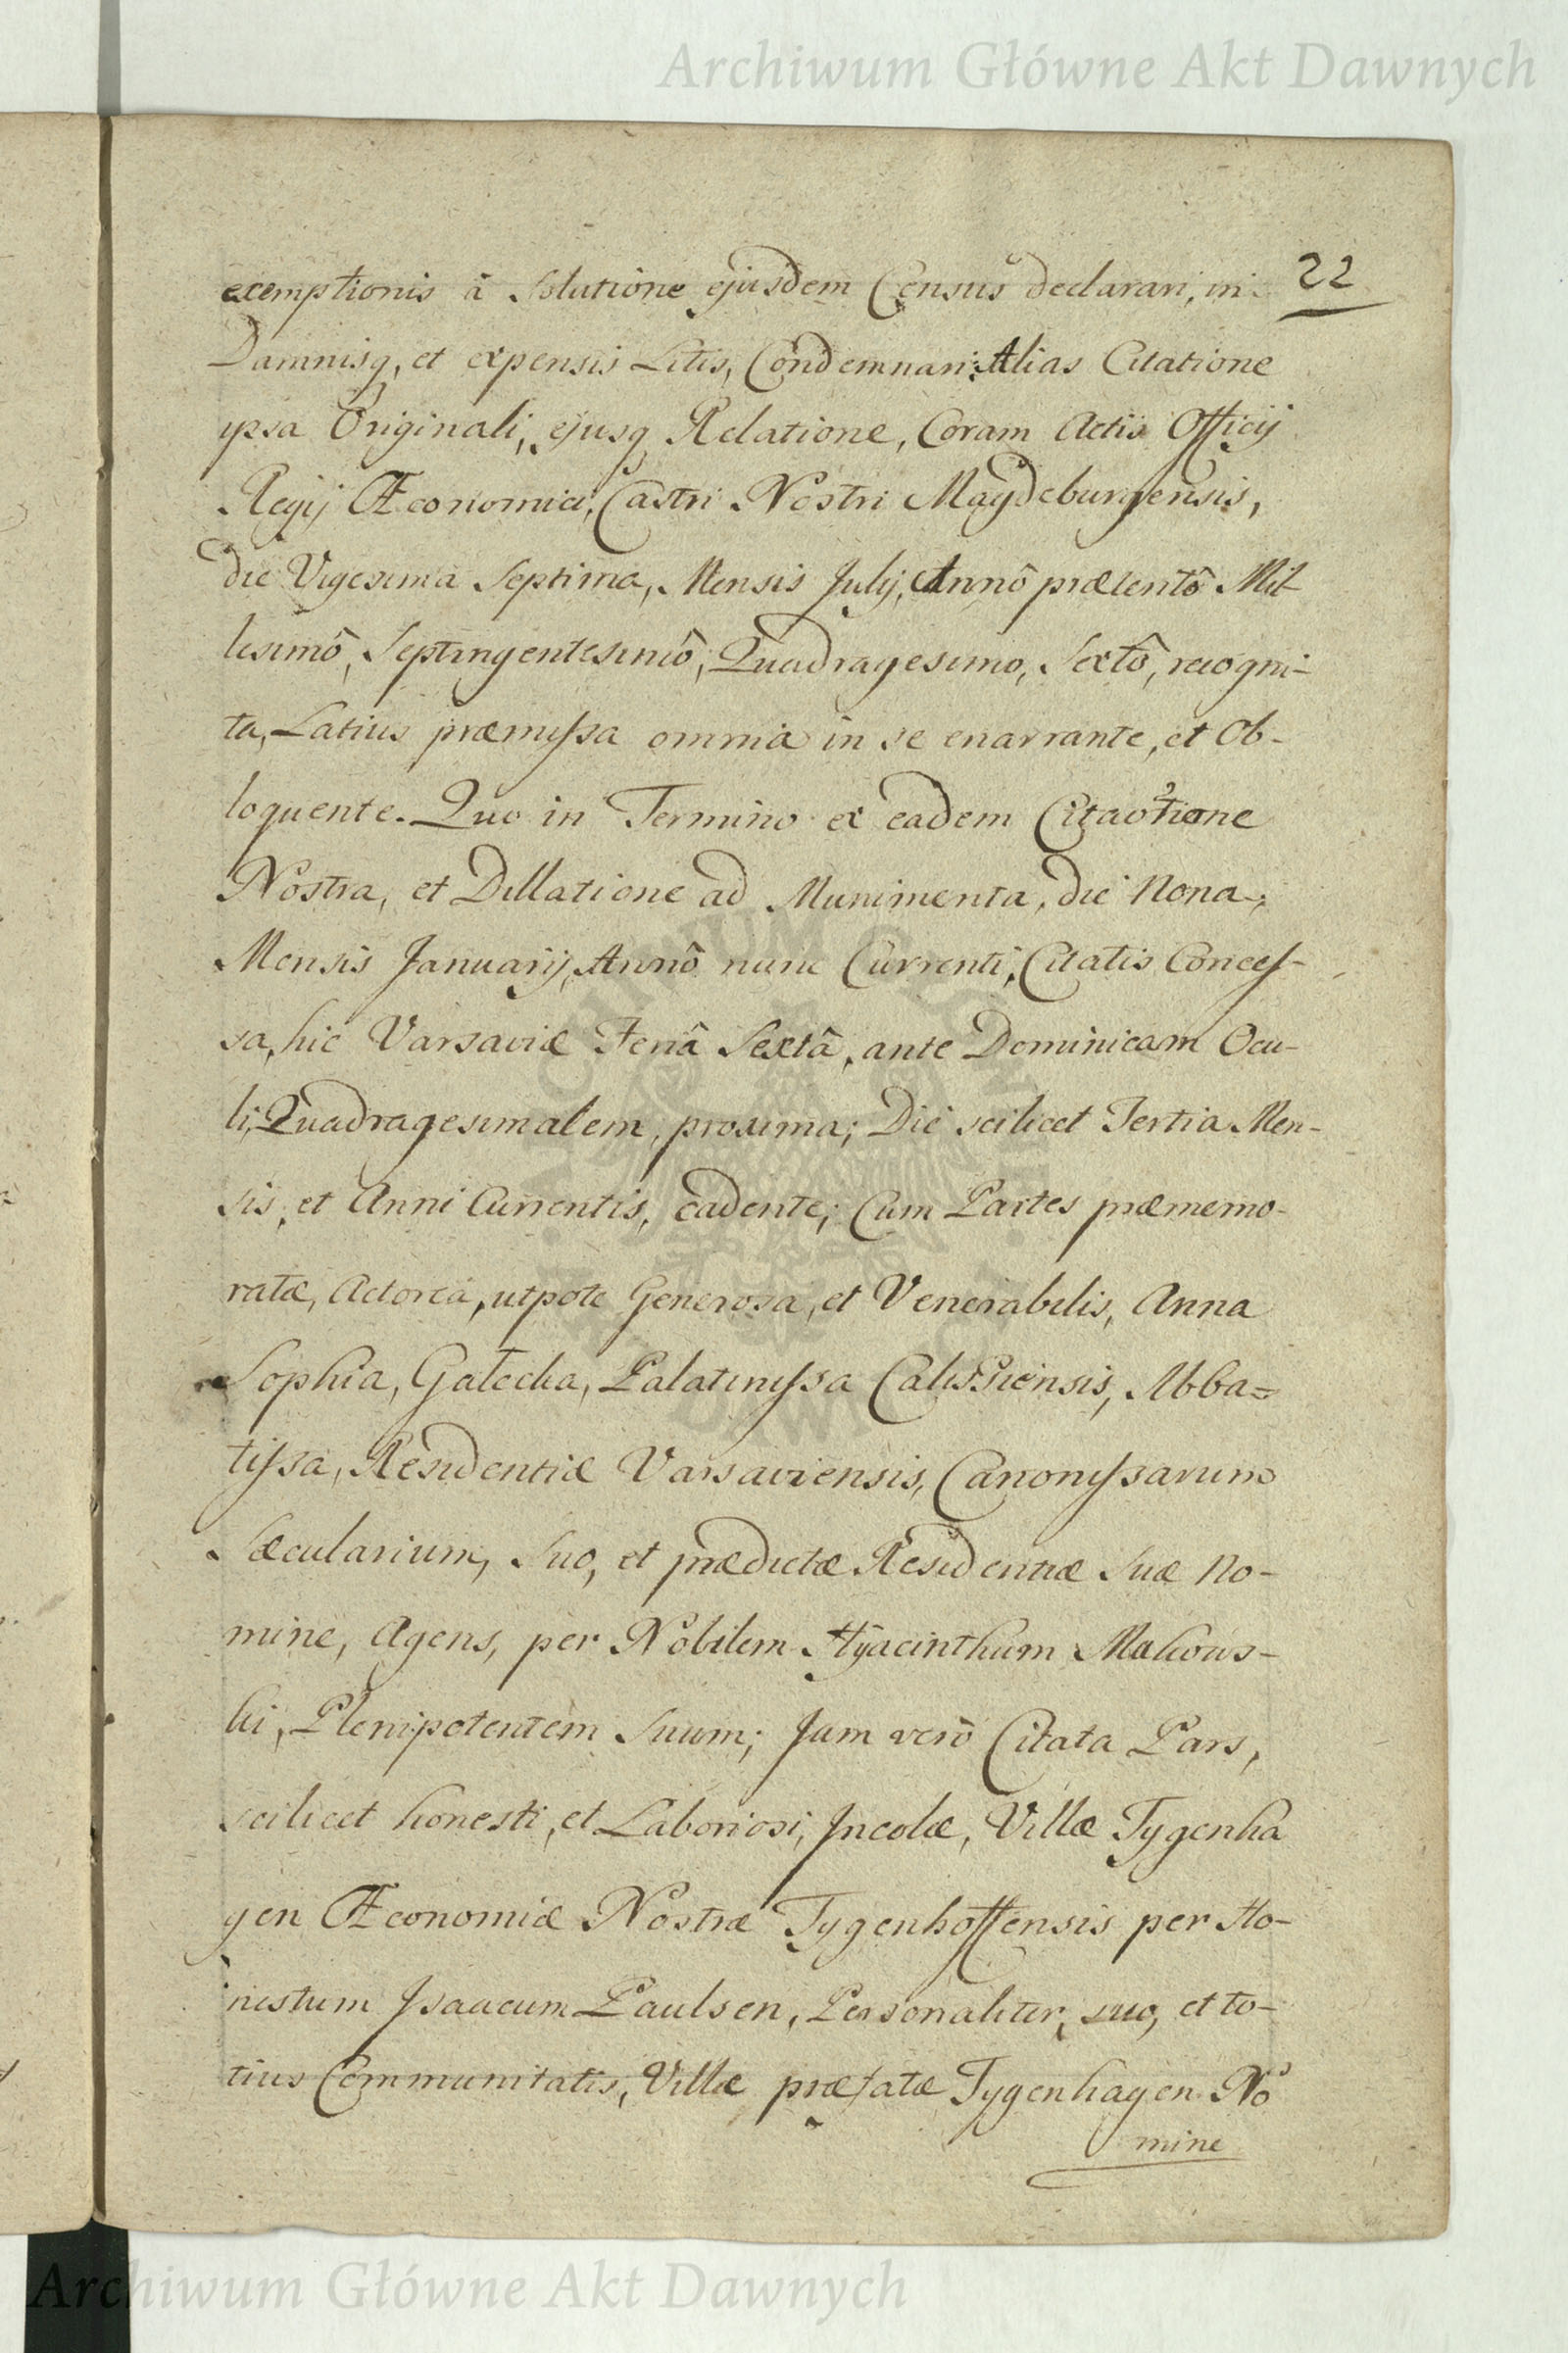 Archiwum Główne Akt Dawnych
22
exemptionis â Solutione ejusdem Census declarari, in
Damnisq, et expensis Litis, Condemnari: Alias Citatione
ipsa Originali, ejusq Relatione, Coram Actis Officij
Regij Œconomici, Castri Nostri Magdeburgensis,
die Vigesima Septima, Mensis Julij, Annô prætentô Mil
lesimô, Septingentesimô, Quadragesimo, Sextô, recogni-
ta, Latius præmissa omnia in se enarrante, et Ob-
loquente. Quo in Termino ex eadem Citaotione
Nostra, et Dillatione ad Munimenta, die Nona,
Mensis Januarij, Annô nunc Currenti, Citatis Conces-
sa, hic Varsaviæ Feriâ Sextâ, ante Dominicam Ocu-
li, Quadragesimalem, proxima; Die scilicet Tertia Men-
sis, et Anni Currentis, cadente; Cum Partes præmemo-
ratæ, Actorea, utpote Generosa, et Venerabilis, Anna
Sophia, Gałecka, Palatinissa Calissiensis, Abba=
tissa, Residentiæ Varsaviensis, Canonissarum
Sæcularium, Suo, et prædictæ Residentiæ Suæ No-
mine, Agens, per Nobilem Hyacinthum Makows-
ki, Plenipotentem Suum; Jam verò Citata Pars,
scilicet honesti, et Laboriosi, Incolæ, Villæ Tygenha
gen Œconomiæ Nostræ Tygenhoffensis per Ho-
nestum Isaacum Paulsen, Personaliter, suo, et to-
tius Communitatis, Villæ præfatæ Tygenhagen No
mine
Archiwum Główne Akt Dawnych